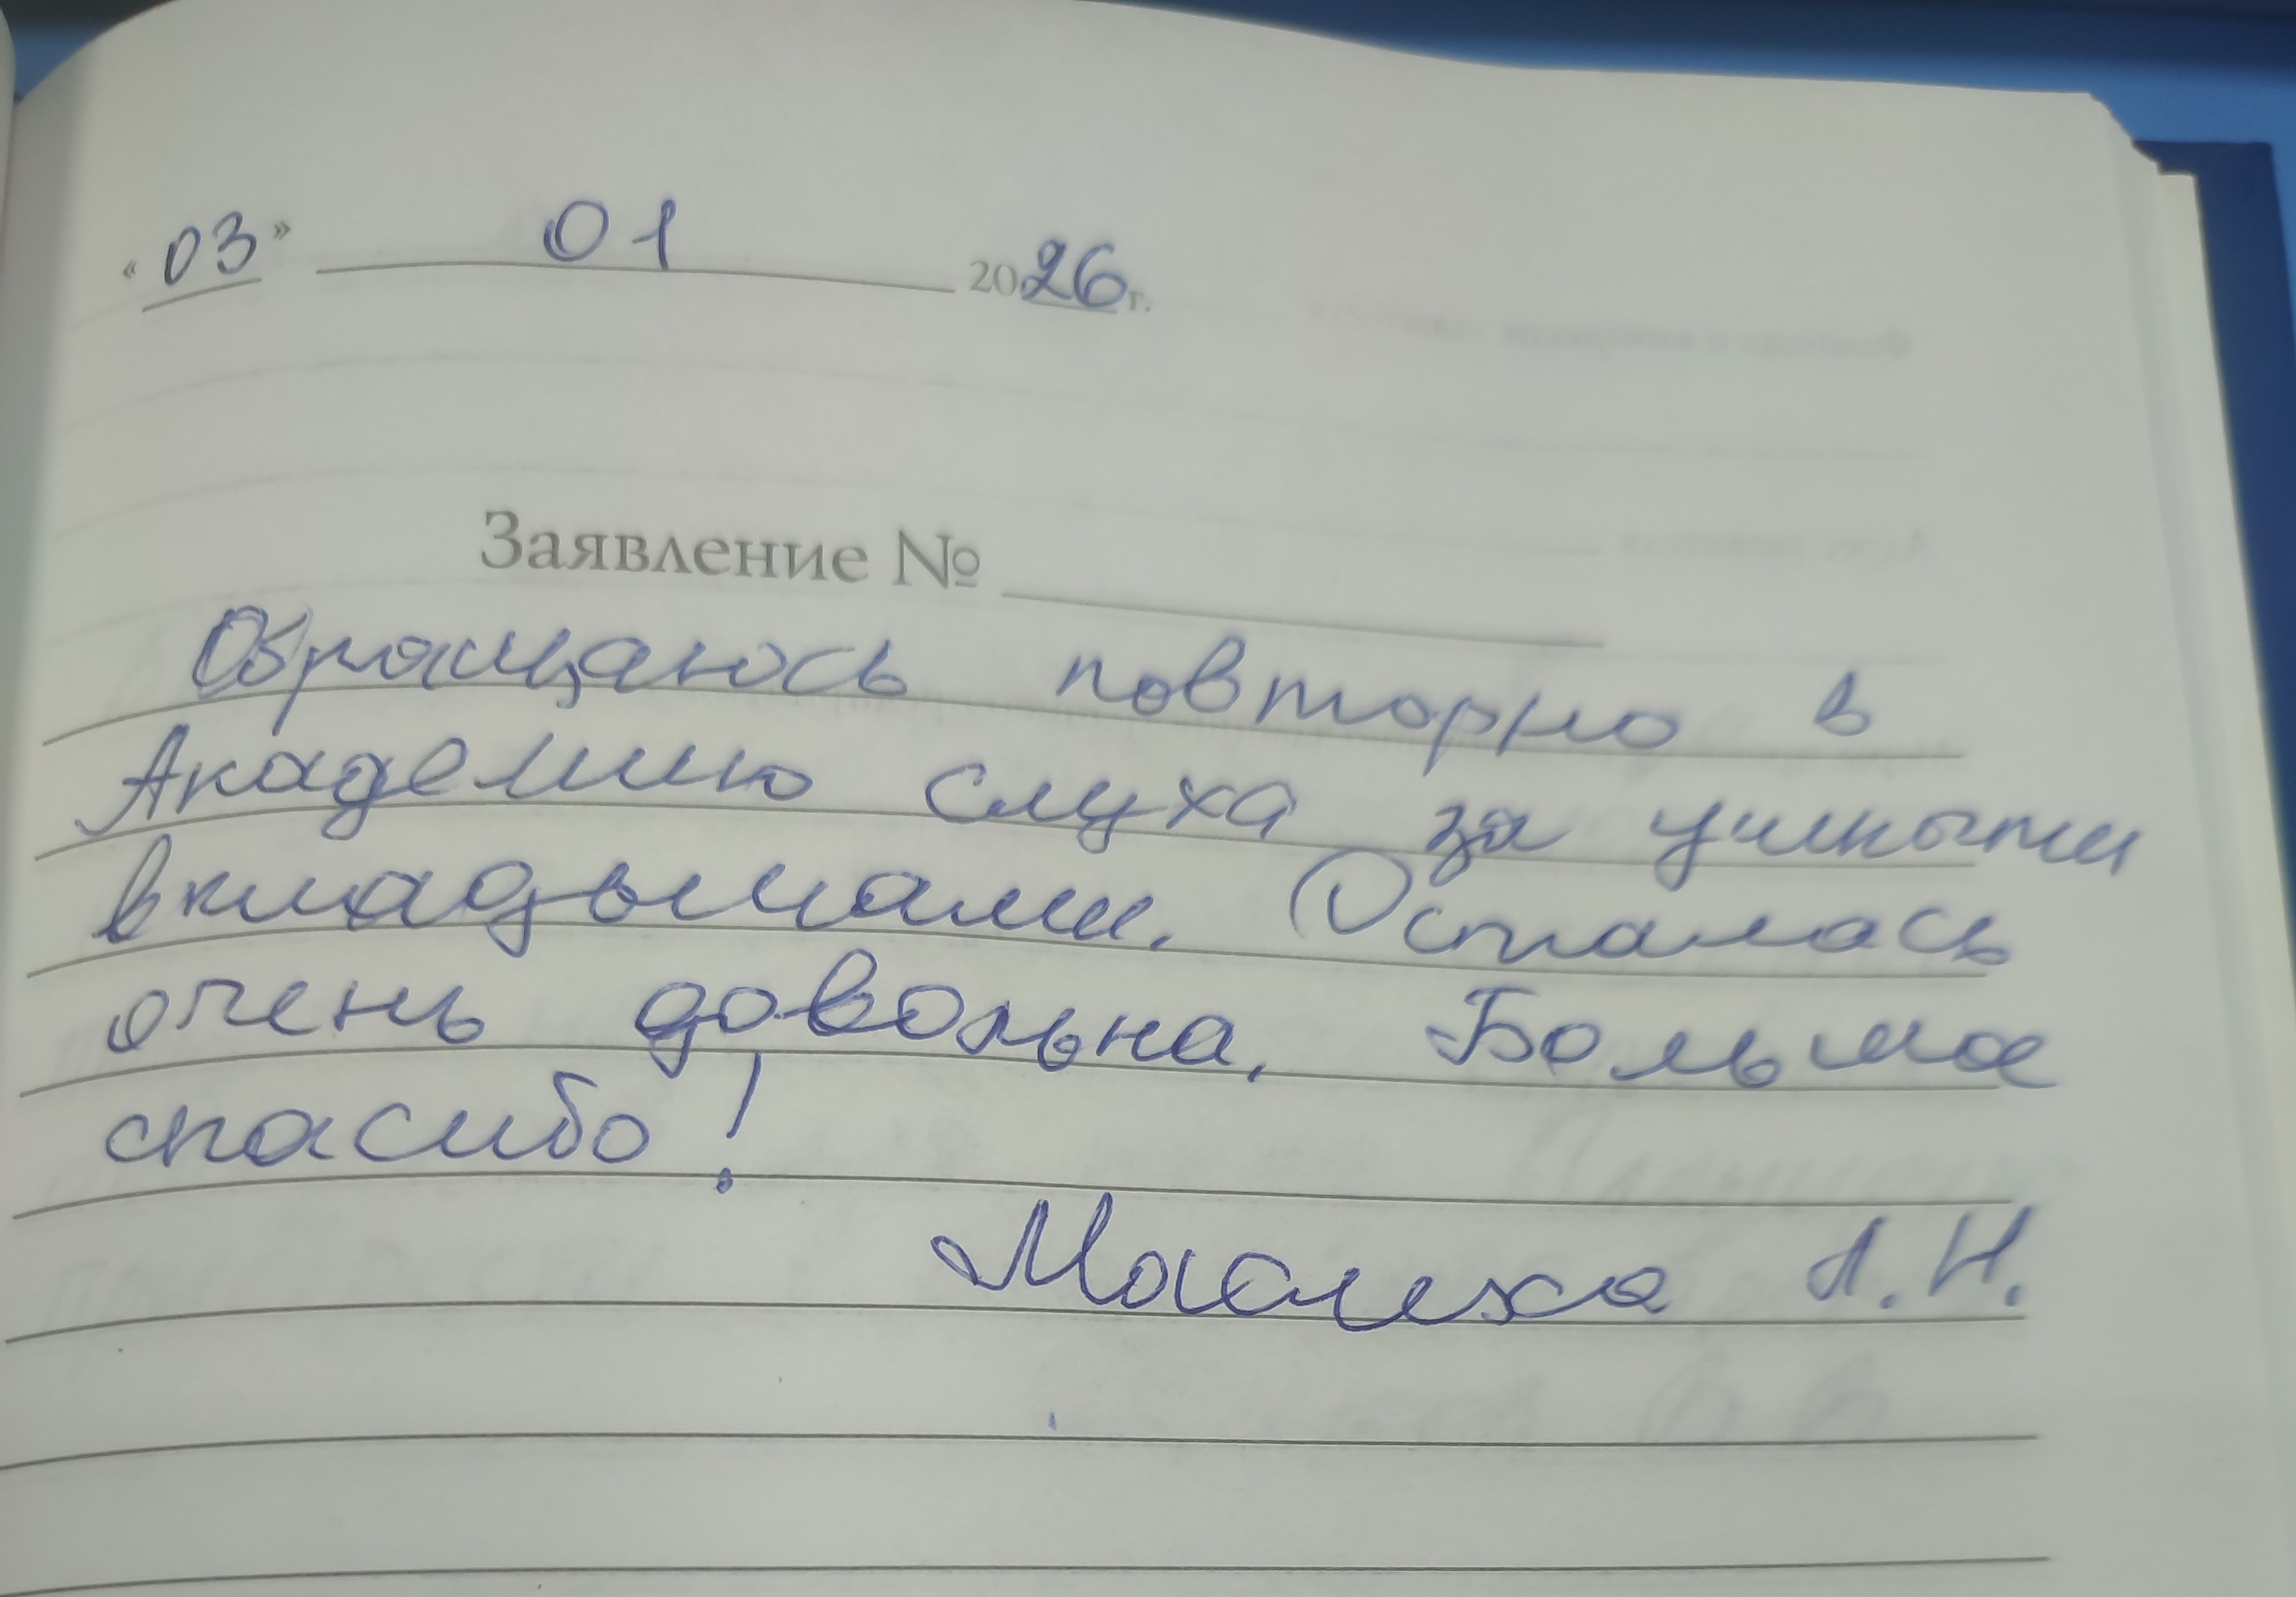 « 03 » 01 2026 г.
Заявление №
Обращаюсь повторно в
Академию слуха за ушными
вкладышами. Осталась
очень довольна. Большое
спасибо!
А. Н.